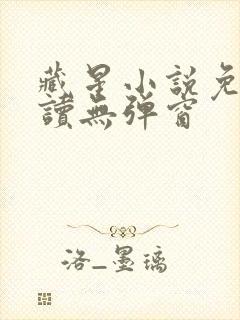 藏星小説免
讀無彈窗
洛_墨璃